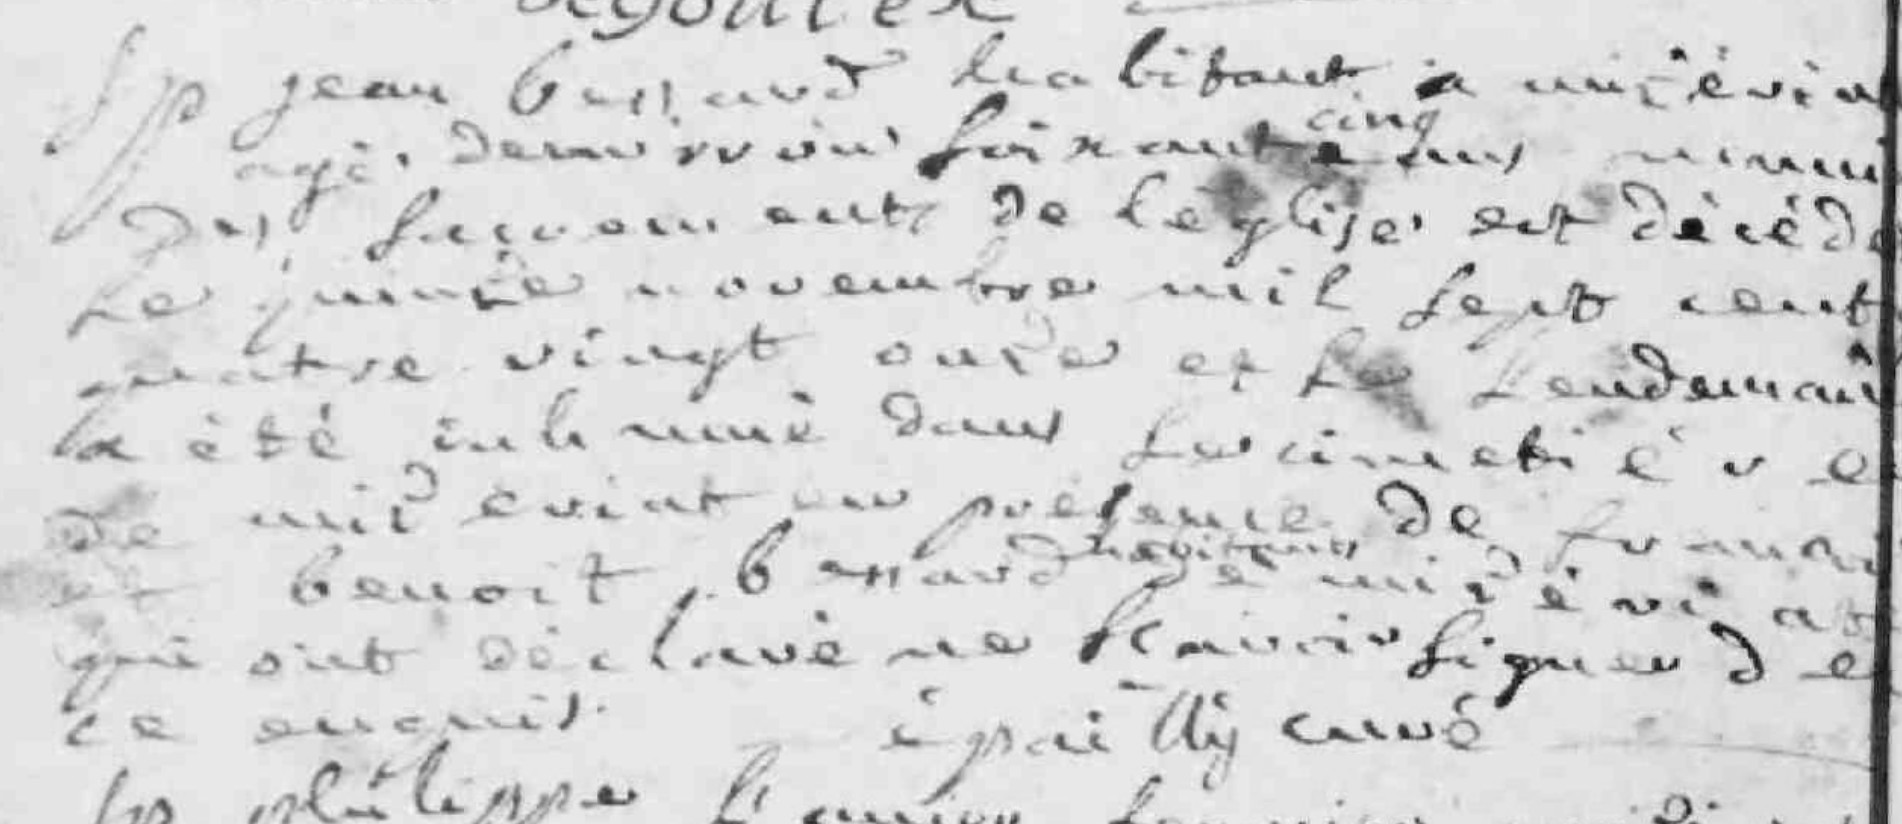 Sp jean bessard habitant a mizéria
agé denviron soixante cinq ans muni
des sacrements de l'église est décédé
le quinze novembre mil sept cent
quatre vingt onze et le lendemain
la été inhumé dans le cimetiére
de mizeriat en présence de françoi
et benoit bessard habitans de mizériat
qui ont déclaré ne scavoir signer de
ce enquis. épailly curé
Sp philippe